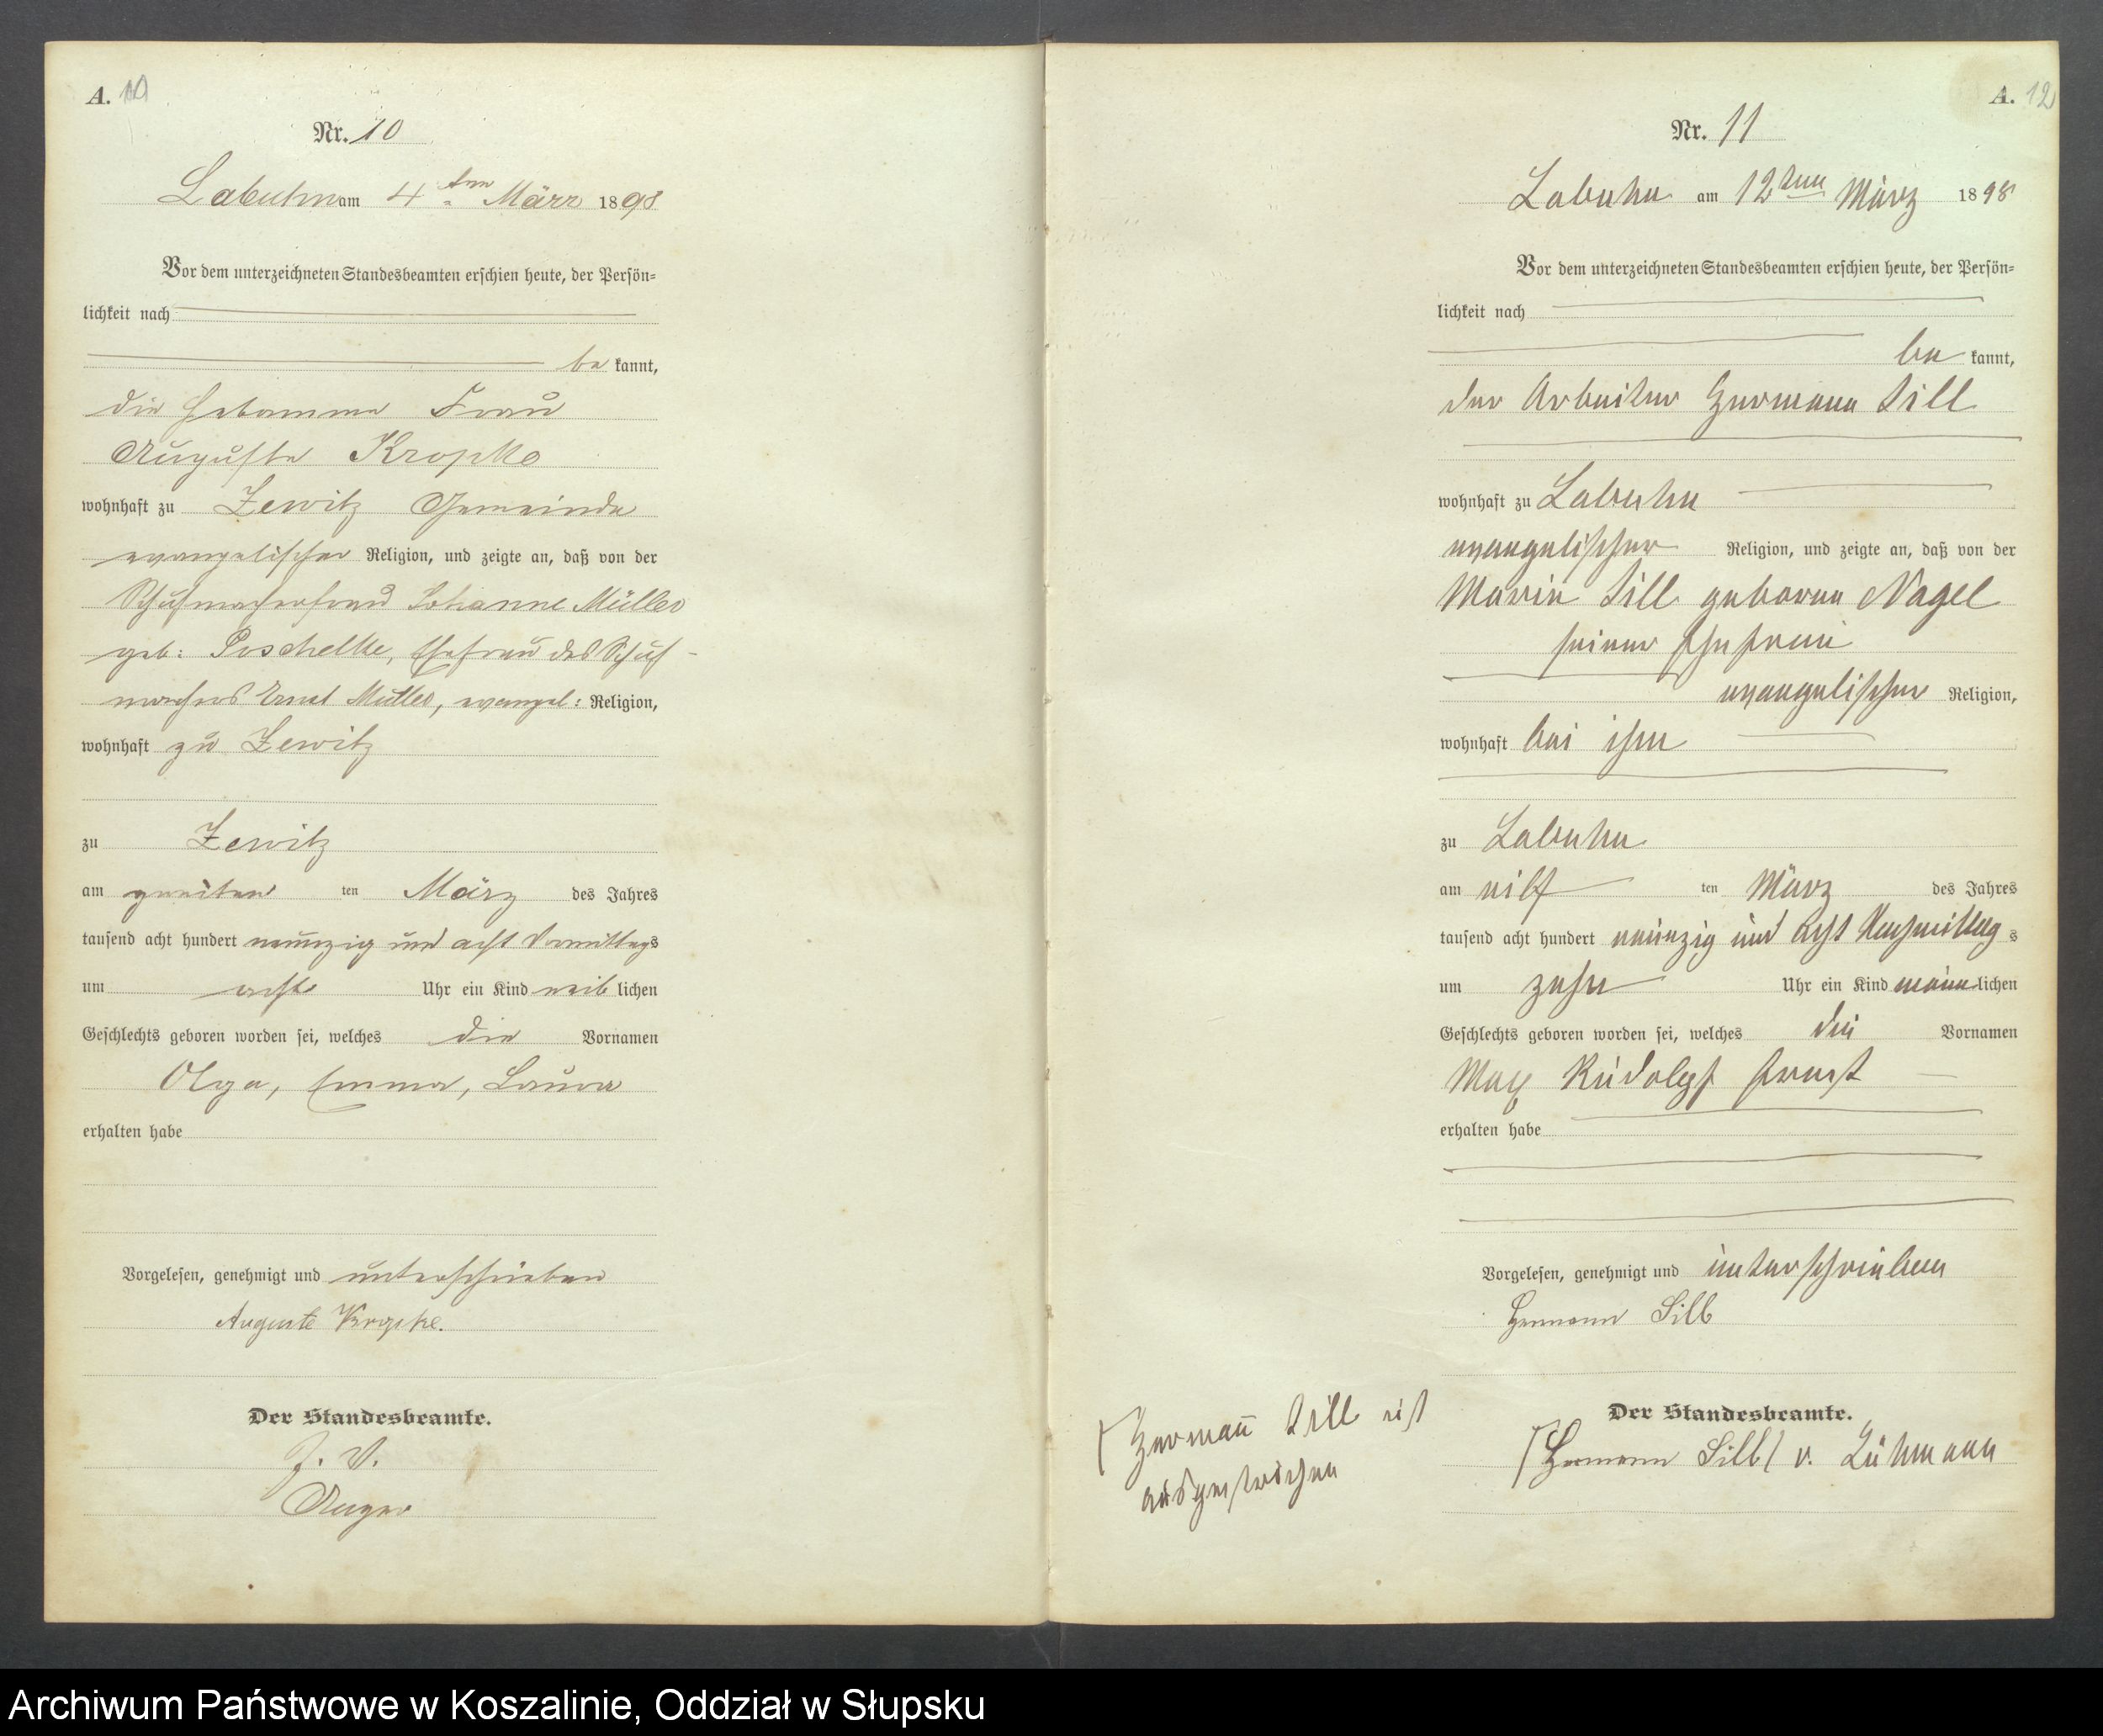 A.
Nr. 10
Labuhn am 4ten März 1898
Vor dem unterzeichneten Standesbeamten erschien heute, der Persön-
lichkeit nach
be kannt,
die Hebamme Frau
Auguste Kropke
wohnhaft zu Zewitz Gemeinde
evangelischer Religion, und zeigte an, daß von der
Schuhmacherfrau Johanne Müller
geb: Poschelke, Ehefrau des Schuh-
machers Ernst Müller, evangel: Religion,
wohnhaft zu Zewitz
zu Zewitz
am zweiten ten März des Jahres
tausend acht hundert neunzig und acht Vormittags
um acht Uhr ein Kind weib lichen
Geschlechts geboren worden sei, welches die Vornamen
Olga, Emma, Laura
erhalten habe
Vorgelesen, genehmigt und unterschrieben
Auguste Kropke.
Der Standesbeamte.
J. V.
A. 12
Nr. 11
Labuhn am 12ten März 1898
Vor dem unterzeichneten Standesbeamten erschien heute, der Persön-
lichkeit nach
be kannt,
der Arbeiter Hermann Sill
wohnhaft zu Labuhn
evangelischer Religion, und zeigte an, daß von der
Marie Sill geborne Nagel
seiner Ehefrau
evangelischer Religion,
wohnhaft bei ihm
zu Labuhn
am elf ten März des Jahres
tausend acht hundert neunzig und acht Nachmittag s
um zehn Uhr ein Kind männ lichen
Geschlechts geboren worden sei, welches die Vornamen
Max Rudolph Ernst
erhalten habe
Vorgelesen, genehmigt und unterschrieben
Hermann Sill
Der Standesbeamte.
[Hermann Sill] v. Lühmann
[Hermann Sill ist
ausgestrichen
Archiwum Państwowe w Koszalinie, Oddział w Słupsku